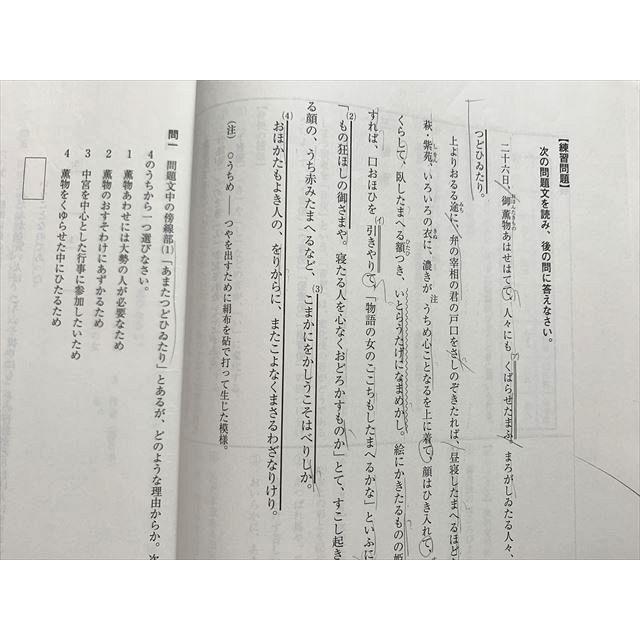 【練習問題】
次の問題文を読み、後の問に答えなさい。
二十六日、御薫物あはせはてて、人々にもくばらせたまふ。まろがしゐたる人々、
つどひゐたり。
上よりおるる途に、弁の宰相の君の戸口をさしのぞきたれば、昼寝したまへるほど
萩・紫苑、いろいろの衣に、濃きがうちめ心ことなるを上に着て、顔はひき入れて、
くらして、臥したまへる額つき、いとらうたげになまめかし。絵にかきたるものの姫
すれば、口おほひを引きやりて、「物語の女のここちもしたまへるかな」といふに
「もの狂ほしの御さまや。寝たる人を心なくおどろかすものか」とて、すこし起き
る顔の、うち赤みたまへるなど、こまかにをかしうこそはべりしか。
おほかたもよき人の、をりからに、またこよなくまさるわざなりけり。
(注) ○うちめ ―― つやを出すために絹布を砧で打って生じた模様。
問一 問題文中の傍線部(1)「あまたつどひゐたり」とあるが、どのような理由からか。次
4のうちから一つ選びなさい。
1 薫物あわせには大勢の人が必要なため
2 薫物のおすそわけにあずかるため
3 中宮を中心とした行事に参加したいため
4 薫物をくゆらせた中にひたるため